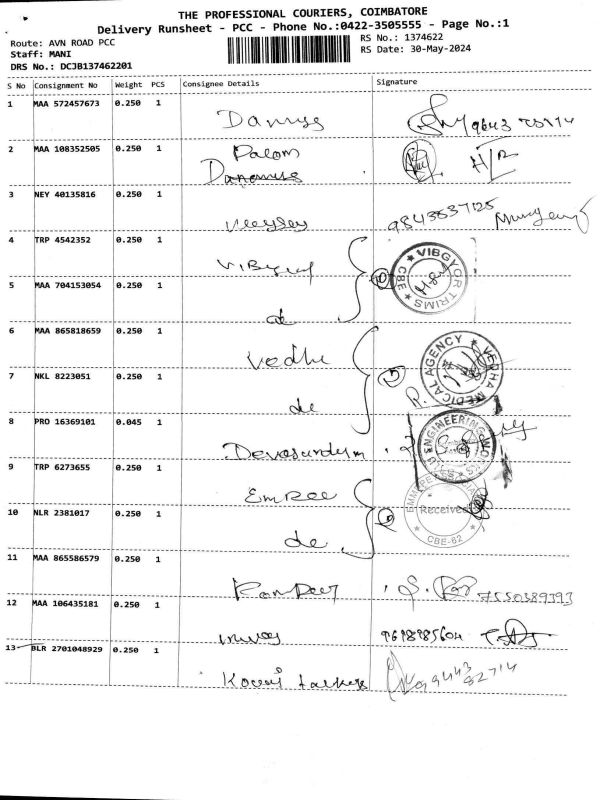 THE PROFESSIONAL COURIERS, COIMBATORE
Delivery Runsheet - PCC - Phone No.:0422-3505555 - Page No.:1
Route: AVN ROAD PCC
RS No.: 1374622
Staff: MANI
RS Date: 30-May-2024
DRS No.: DCJB137462201
S No Consignment No Weight PCS Consignee Details Signature
1 MAA 572457673 0.250 1
2 MAA 108352505 0.250 1 Palom
3 NEY 40135816 0.250 1
9843537125
4 TRP 4542352 0.250 1
VIBGYOR TRIMS
CBE
5 MAA 704153054 0.250 1
de
6 MAA 865818659 0.250 1
Vedha
VEDHA MEDICAL AGENCY
7 NKL 8223051 0.250 1
de
8 PRO 16369101 0.045 1
Devasundum
ENGINEERING
9 TRP 6273655 0.250 1
Emree
10 NLR 2381017 0.250 1
Received
CBE-62
de
11 MAA 865586579 0.250 1
7550389793
12 MAA 106435181 0.250 1
13 BLR 2701048929 0.250 1
9443
82714